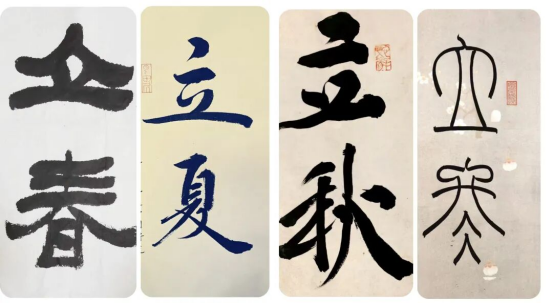 立春
立夏
立秋
立冬